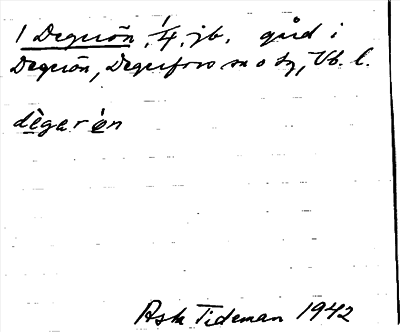 1 Degerön, 1/4, jb, gård i
Degerön, Degerfors sn o tg, Vb. l.
dègarèn
Asta Tideman 1942